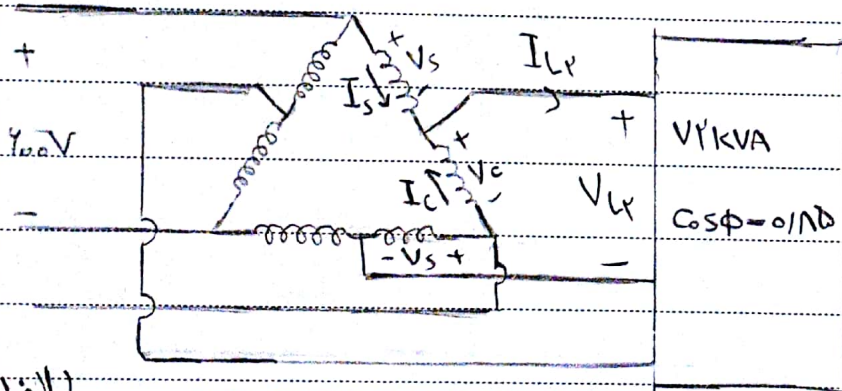 +
۶۰۰V
-
+
Vs
Is
IL۲
+
Vc
-
Ic
- Vs +
+
VL۲
-
۷۲KVA
Cosφ=۰/۸۵